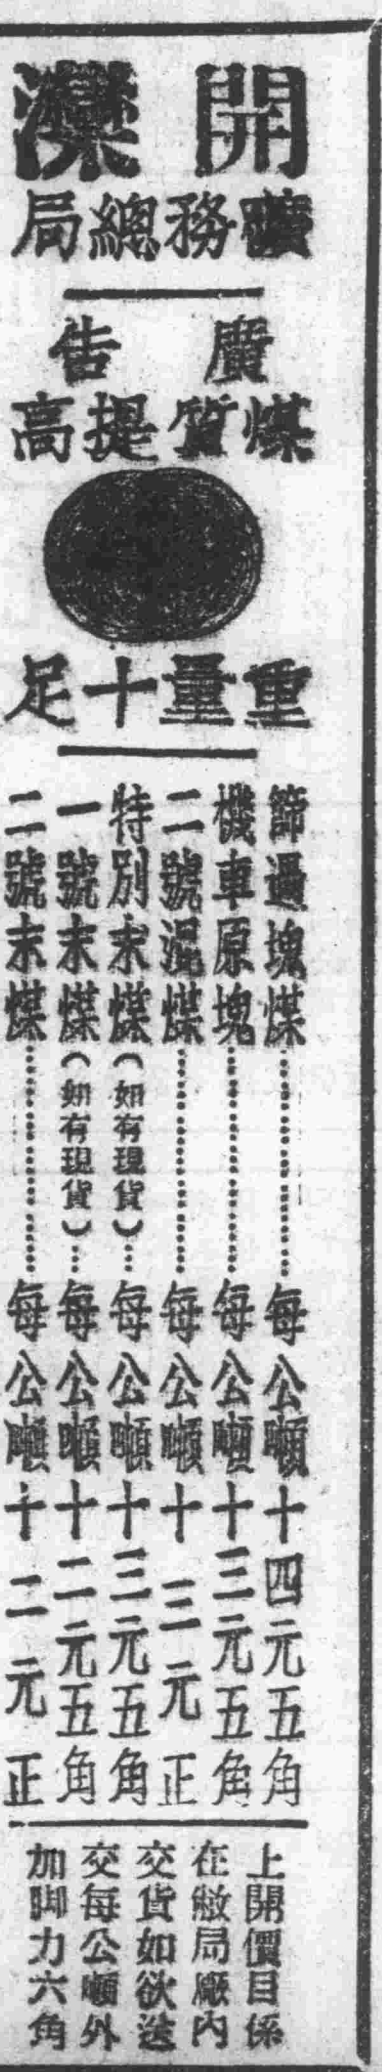 開灤
礦務總局
廣告
煤質提高
重量十足
篩過塊煤………每公噸十四元五角
機車原塊………每公噸十三元五角
二號混煤………每公噸十三元正
特別末煤（如有現貨）…每公噸十三元五角
一號末煤（如有現貨）…每公噸十二元五角
二號末煤………每公噸十二元正
上開價目係
在敝局廠內
交貨如欲送
交每公噸外
加脚力六角